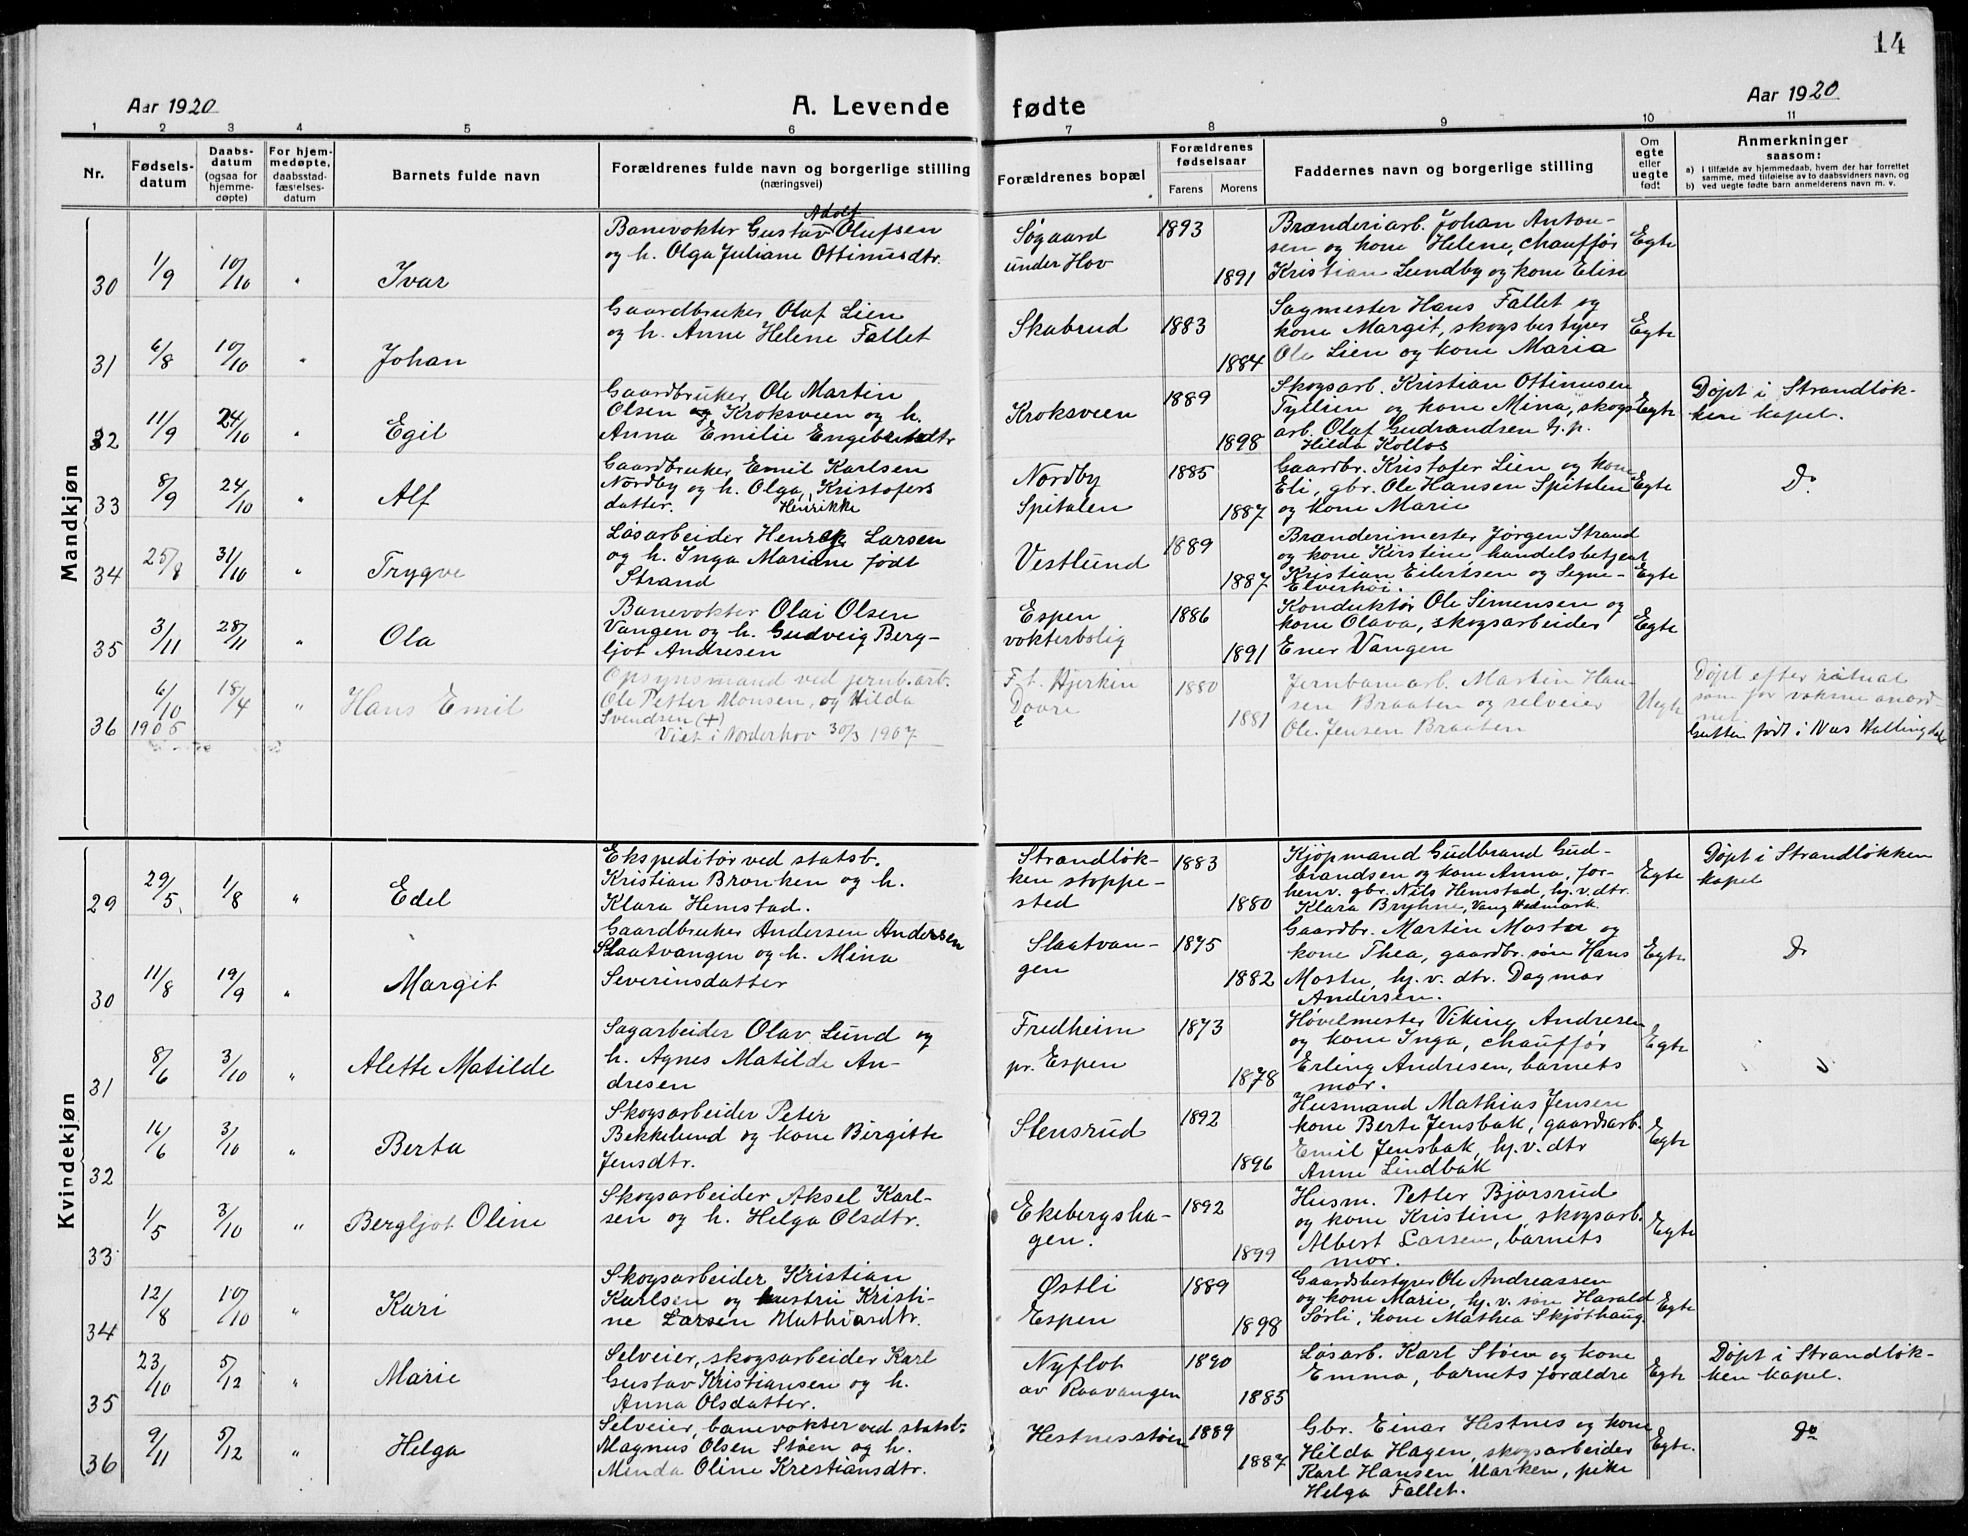 14
Aar 1920
A. Levende fødte
Aar 1920
1 2 3 4 5 6 7 8 9 10 11
Nr.
Fødsels-
datum
Daabs-
datum
(ogsaa for
hjemme-
døpte)
For hjem-
medøpte,
daabsstad-
fæstelses-
datum
Barnets fulde navn
Forældrenes fulde navn og borgerlige stilling
(næringsvei)
Forældrenes bopæl
Forældrenes
fødselsaar
Farens Morens
Faddernes navn og borgerlige stilling
Om
egte
eller
uegte
født
Anmerkninger
saasom:
a) i tilfælde av hjemmedaab, hvem der har forrettet
samme, med tilføielse av to daabsvidners navn, og
b) ved uegte fødte barn anmelderens navn m. v.
Mandkjøn
30 1/9 10/10 " Ivar
Adolf
Banevokter Gustav Olufsen
og h. Olga Juliane Ottinusdtr.
Søgaard
under Hov
1893
1891
Brænderiarb. Johan Anton-
sen og kone Helene, chauffør
Kristian Lundby og kone Elise
Egte
31 6/8 10/10 " Johan
Gaardbruker Olaf Lien
og h. Anne Helene Fallet
Skabrud
1883
1884
Sagmester Hans Fallet og
kone Margit, skogsbestyrer
Ole Lien og kone Maria
Egte
32 11/9 24/10 " Egil
Gaardbruker Ole Martin
Olsen Kroksveen og h.
Anna Emilie Engebretsdtr
Kroksveen
1889
1898
Skogsarb. Kristian Ottinusen
og kone Mina, skogs-
arb. Olaf Gudrandsen
Hilda Kollos
Egte
Døpt i Strandløk-
ken kapel.
33 8/9 24/10 " Alf
Gaardbruker Emil Karlsen
Nordby og h. Olga Kristofers
datter. Henrikke
Nordby
Spitalen
1885
1887
Gaardbr. Kristofer Lien og kone
Eli, gbr. Ole Hansen Spitalen
og kone Marie
Egte
Do
34 25/8 31/10 " Trygve
Løsarbeider Henrik Larsen
og h. Inga Mariane født
Strand
Vestlund
1889
1887
Brænderimester Jørgen Strand
og kone Kirstine, handelsbetjent
Kristian Eilertsen og Signe
Elverhøi.
Egte
35 3/11 28/11 " Ola
Banevokter Olai Olsen
Vangen og h. Gudveig Berg-
ljot Andresen
Espen
vokterbolig
1886
1891
Konduktør Ole Simensen og
kone Olava, skogsarbeider
Ener Vangen
Egte
36 6/10 1905 18/4 " Hans Emil
Opsynsmand ved jernb.arb.
Ole Petter Monsen, og Hilda
Svendsen (+)
Viet i Norderhov 30/3 1907
F. t. Hjerkin
Dovre
1880
1881
Jernbanearb. Martin Han-
sen Braaten og selveier
Ole Jensen Braaten
Uegte
Døpt efter ritual
som for voksne anord-
net.
Gutten født i Nes Hallingdal
Kvindekjøn
29 29/5 1/8 " Edel
Ekspeditør ved statsb.
Kristian Bronken og h.
Klara Hemstad.
Strandløk-
ken stoppe-
sted
1883
1880
Kjøpmand Gudbrand Gud-
brandsen og kone Anna, for-
henv. gbr. Nils Hemstad, hj. v. dtr.
Klara Bryhne, Vang Hedmark
Egte
Døpt i Strandløkken
kapel
30 11/8 19/9 " Margit
Gaardbruker Andersen Andersen
Slaatvangen og h. Mina
Severinsdatter
Slaatvan-
gen
1875
1882
Gaardbr. Martin Mostu og
kone Thea, gaardbr. søn Hans
Mostu, hj. v. dtr. Dagmar
Andersen.
Egte
Do
31 8/6 3/10 " Alette Matilde
Sagarbeider Olav Lund og
h. Agnes Matilde An-
dresen
Fredheim
pr. Espen
1873
1878
Høvelmester Viking Andresen
og kone Inga, chauffør
Erling Andresen, barnets
mor.
Egte
32 16/6 3/10 " Berta
Skogsarbeider Peter
Bekkelund og kone Birgitte
Jensdtr.
Stensrud
1892
1896
Husmand Mathias Jensen
kone Berte Jensbak, gaardsarb.
Emil Jensbak, hj. v. dtr
Anne Lindbak
Egte
33 1/5 3/10 " Bergljot Oline
Skogsarbeider Aksel Karl-
sen og h. Helga Olsdtr.
Ekebergsha-
gen.
1892
1899
Husm. Petter Bjørsrud
og kone Kristine, skogsarb.
Albert Larsen, barnets
mor.
Egte
34 12/8 10/10 " Kari
Skogsarbeider Kristian
Karlsen og hustru Kristi-
ne Larsen Mathiasdtr.
Østli
Espen
1889
1898
Gaardsbestyrer Ole Andreassen
og kone Marie, hj. v. søn Harald
Sørli, kone Mathea Skjøthaug
Egte
35 23/10 5/12 " Marie
Selveier, skogsarbeider Karl
Gustav Kristiansen og h.
Anna Olsdatter.
Nyflot
av Raavangen
1890
1885
Løsarb. Karl Støen og kone
Emma, barnets forældre
Egte
Døpt i Strandløk-
ken kapel.
36 9/11 5/12 " Helga
Selveier, banevokter ved statsb.
Magnus Olsen Støen og h.
Minda Oline Krestiansdtr.
Hestnesstøen
1889
1887
Gbr. Einar Hestnes og kone
Hilda Hagen, skogsarbeider
Karl Hansen Marken, pike
Helga Fallet.
Egte.
Do